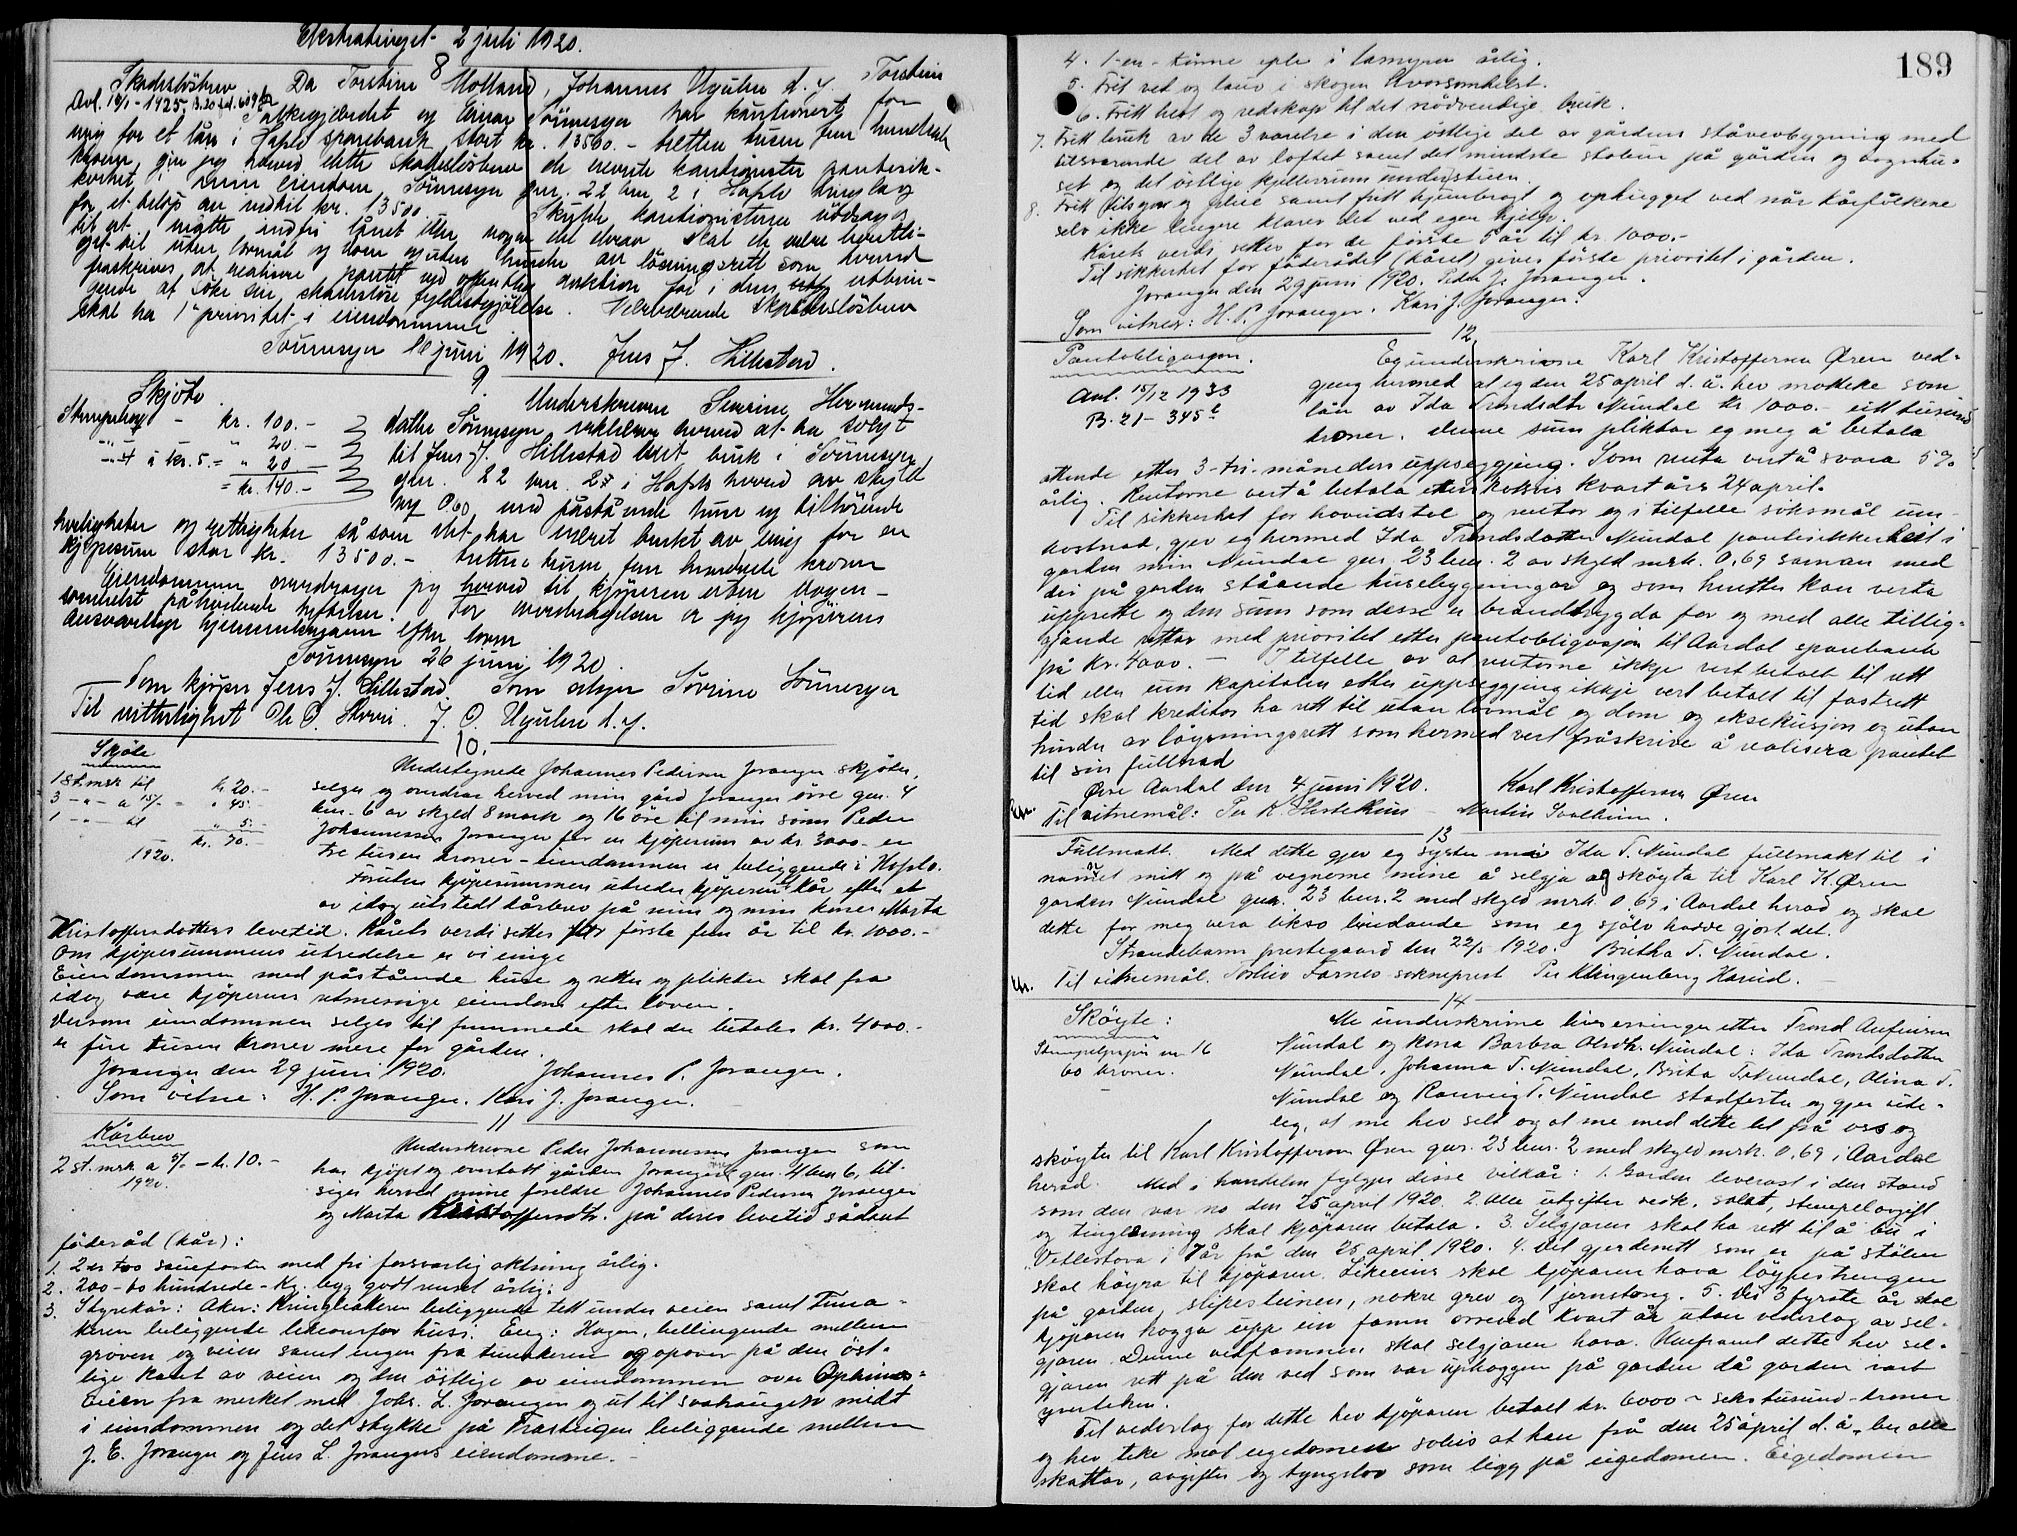 Ekstratinget 2 juli 1920.
8
Skadesløsbrev Da Torstein Molland, Johannes Ugulen d. y. Torstein
Avl. 19/1-1925 B.20 Einar Sönnesyn har kautionert for
mig for et lån i Hafslo sparebank stort kr. 13500.- tretten tusen fem hundrede
kroner, gir jeg herved dette skadesløsbrev de nevnte kautionister pantesik-
kerhet i min eiendom Sönnesyn gnr. 22 bnr 2 i Hafslo herred
for et beløp av indtil kr. 13500. Skulde kautionisterne nødsages
til at måtte indfri lånet eller noget del derav skal de være beretti-
get til uten lovmål og dom og uten hinder av løsningsrett som herved
fraskrives, at realisere pantet ved offentlig auktion for i dens utbrin-
gende at søke sin skadesløse fyldestgjørelse. Nærværende skadesløsbrev
skal ha 1ste prioritet i eiendommene
Sönnesyn juni 1920. Jens J. Hillestad.
9
Skjöte. Underskrevne Severine Hermunds-
Stempelavg - kr. 100.- datter Sönnesyn erklærer herved at ha solgt
" 20.- til Jens J. Hillestad mit bruk i Sönnesyn
à kr. 5. = " 20 gnr. 22 bnr. 2 i Hafslo herred av skyld
= kr. 140.- med påstående huse og tilhørende
herligheter og rettigheter så som det har været brukt av mig for en
kjøpesum stor kr. 13500.- tretten tusen fem hundrede kroner
Eiendommen overdrager jeg herved til kjøperen uten nogen-
somhelst påheftende heftelser. For overdragelsen er jeg kjøperens
ansvarlige hjemmelsmann efter loven
Sönnesyn 26 juni 1920.
Som kjøper Jens J. Hillestad. Som selger Sövrine Sönnesyn
Til vitterlighet J. O. Ugulen d. y.
10.
Skjöte Undertegnede Johannes Pedersen Joranger skjöter,
1 st.mrk til kr 20.- selger og overdrar herved min gård Joranger övre gnr. 4
3 -"- a 15/- = " 45.- bnr. 6 av skyld 8 mark og 16 öre til min sönn Peder
1 -"- til " 5.- Johannessen Joranger for en kjöpesum av kr. 3000 - er
kr. 70.- tre tusen kroner - eiendommen er beliggende i Hafslo.
1920. Foruten kjöpesummen utreder kjöperen kår efter et
av idag utstedt kårbrev på min og min kones Marta
Kristoffersdatters levetid. Kårets verdi settes for förste fem år til kr. 1000.-
Om kjöpesummens utredelse er vi enige
Eiendommen med påstående huse og retter og plikter skal fra
idag være kjöperens retmessige eiendom efter loven.
Dersom eiendommen selges til fremmede skal der betales kr. 4000.-
er fire tusen kroner mere for gården.
Joranger den 29 juni 1920. Johannes P. Joranger.
Som vitne: H. P. Joranger. Kari J. Joranger.
11
Kårbrev Underskrevne Peder Johannessen Joranger som
2 st. mrk a 5/- - kr. 10.- har kjöpt og overtatt gården Joranger övre gnr. 4 bnr 6, til-
1920. siger herved mine foreldre Johannes Pedersen Joranger
og Marta Kristoffersdtr. på deres levetid sådant
föderåd (kår):
1. 2 er to sauefoster med fri forsvarlig röktning årlig.
2. 200 - to hundrede - Kg. bygg godt renset årlig.
3. Styrekår: Aker: Kringleåkeren beliggende tett under veien samt Tuna-
keren beliggende likeovenfor huss. Eng: Hagen, beliggende mellem
gröven og veien samt engen fra tunåkeren og opover på den öst-
lige kant av veien og den östlige av eiendommen over
fra merket med Johs. L. Joranger og ut til midt
i eiendommen og det stykke på beliggende mellem
J. E. Joranger og Jens L. Jorangers eiendomme.
189
4. 1-en - tönne epler i årlig.
5. Frit ved og lauv i skogen hvorsomhelst.
6. Frit hest og redskap til det nödvendige bruk.
7. Frit bruk av de 3 værelse i den östlige del av gårdens ståvebygning med
tilsvarende del av loftet samt det mindste stabur på gården og vognhu-
set og det östlige kjellerrum under stuen.
8. Frit tilsyn og pleie samt frit hjembragt og ophugget ved når kårfolkene
selv ikke lengere klarer det ved egen hjelp.
Kårets verdi settes for de förste 5 år til kr. 1000.-
Til sikkerhet for föderådet (kåret) gives förste prioritet i gården.
Joranger den 29 juni 1920. Peder J. Joranger.
Som vitner: H. P. Joranger. Kari J. Joranger.
12
Pantobligasjon. Eg underskrivne Karl Kristofferson Øren ved-
Avl. 15/12 1933 gjeng hermed at eg den 25 april d. å. hev motteke som
B. 21 - 345 lån av Ida Trondsdtr Nundal kr 1000.- eitt tusund
kroner. denne sum pliktar eg meg å betala
attende etter 3-tri-måneders uppseggjing. Som renta vert å svara 5%
årlig. Rentorne vert å betala etterskotsvis kvart års 24 april.
Til sikkerhet for hovudstol og rentor og i tilfelle söksmål um-
kostnad, gjev eg hermed Ida Trondsdatter Nundal pantesikkerheit i
garden min Nundal gnr. 23 bnr. 2 av skyld mrk. 0,69 saman med
dei på garden ståande husebygningar og som heretter kan verta
upprette og den sum som desse er brandtrygda for og med alle tillig-
gjande rettar med prioritet etter pantobligasjon til Aardal sparebank
på kr. 4000.- I tilfelle av at rentorne ikkje vert betalt til rett
tid eller um kapitalen etter uppseggjing ikkje vert betalt til fastsett
tid skal kreditor ha rett til utan lovmål og dom og eksekusjon og utan
hinder av löysningsrett som hermed vert fråskrive å realisera pantet
til sin fullnad
Øvre Aardal den 4 juni 1920. Karl Kristofferson Øren
Til vitnemål: Per K. Hestetun Martin Svalheim.
13
Fullmakt. Med dette gjev eg syster mi Ida T. Nundal fullmakt til i
namnet mitt og på vegnerne mine å selgja og sköyta til Karl K. Øren
garden Nundal gnr. 23 bnr. 2 med skyld mrk. 0.69 i Aardal herad og skal
dette for meg vera likso bindande som eg själv hadde gjort det.
Strandebarm prestegaard den 22/5 1920. Britha T. Nundal.
Til vitnemål. Torleiv Farnes sokneprest Per Klingenberg Harud.
14
Sköyte: Me underskrivne livserningar etter Trond Anfinsen
Stempelpapir nr. 16 Nundal og kona Barbra Olsdtr. Nundal: Ida Trondsdotter
60 kroner. Nundal, Johanna T. Nundal, Brita T. Nundal, Olina T.
Nundal og Ranveig T. Nundal stadfester og gjer vite-
leg, at me hev selt og at me med dette let frå oss og
sköyter til Karl Kristofferson Øren gnr. 23 bnr. 2 med skyld mrk. 0.69 i Aardal
herad. Med i handelen fylgjer disse vilkår: 1. Garden leverast i den stand
som den var no den 25 april 1920. 2. Alle utgifter vedk. salet, stempelavgift
og tinglesning skal kjöparen betala. 3. Seljaren skal ha rett til å bu i
Vetlestova i 7 år frå den 25 april 1920. 4. Det gjerdenett som er på stölen
skal höyra til kjöparen. Likeeins skal kjöparen hava löypestrengen
på garden, slipesteinen, nokre grev og 1 jernstong. 5. Dei 3 fyrste år skal
kjöparen hogga upp ein famn orreved kvart år utan vederlag av sel-
gjaren. Denne vedfamnen skal selgjaren hava. Umframt dette hev sel-
gjaren rett på den ved som var upphoggen på garden då garden vart
yverteken.
Til vederlag for dette hev kjöparen betalt kr. 6000 - seks tusund - kroner
og hev teke mot eigedomen soleis at han frå den 25 april d. å. ber alle
skattar, avgifter og tyngslor som ligg på eigedomen. Eigedomen